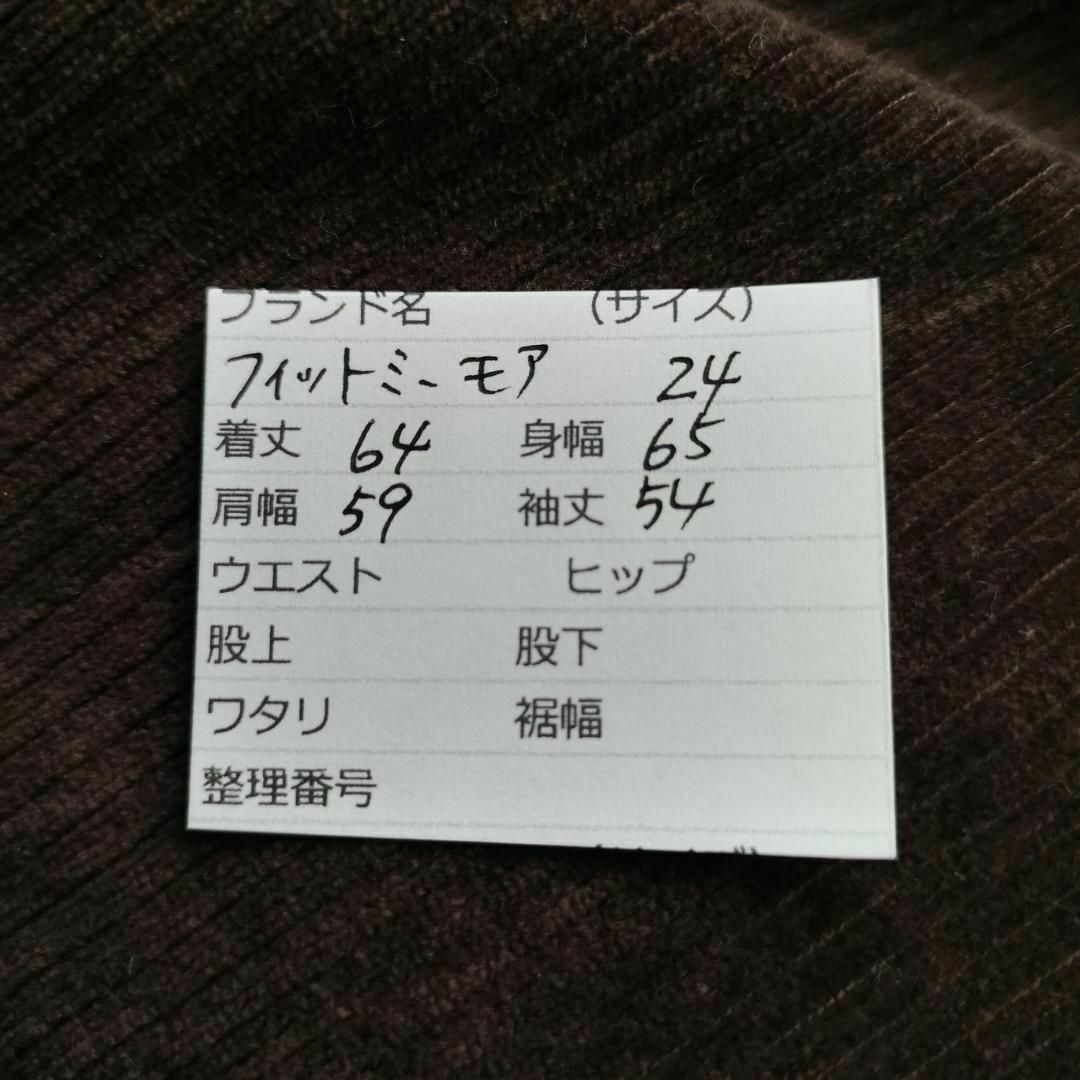 ブランド名 (サイズ)
フィットミー モア 24
着丈 64 身幅 65
肩幅 59 袖丈 54
ウエスト ヒップ
股上 股下
ワタリ 裾幅
整理番号